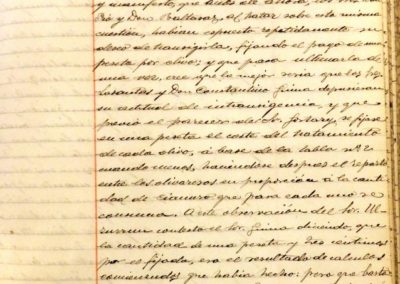 y manifestó, que antes de ahora, los
Don Baltasar, al tratar sobre esta misma
cuestión, habían expuesto repetidamente su
deseo de transigirla, fijando el pago de una
peseta por olivo; y que para ultimarla de
una vez, cree que lo mejor sería que los Sres.
y Don Constantino Gima depusieran
su actitud de intransigencia, y que
previo el parecer del Sr. se fijase
en una peseta el coste del tratamiento
de cada olivo, á base de la tabla nº 2
cuando menos, haciéndose después el reparto
entre los olivareros en proporción á la canti-
dad de cianuro que para cada uno se
consuma. A esta observación del Sr.
contestó el Sr. Gima diciendo, que
la cantidad de una peseta y tres céntimos
por él fijada, era el resultado de cálculos
que había hecho; pero que